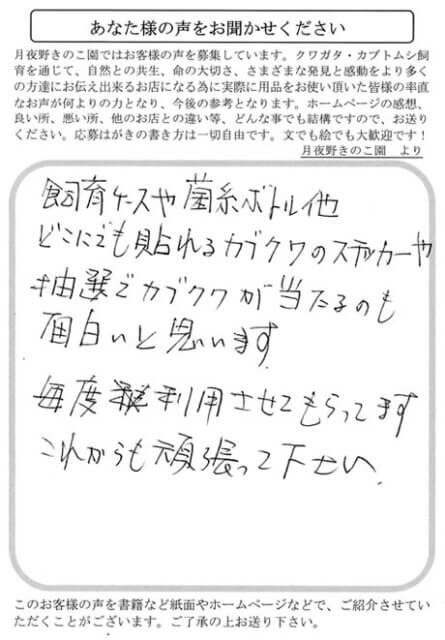 あなた様の声をお聞かせください
月夜野きのこ園ではお客様の声を募集しています。クワガタ・カブトムシ飼
育を通じて、自然との共生、命の大切さ、さまざまな発見と感動をより多く
の方達にお伝え出来るお店になる為に実際に用品をお使い頂いた皆様の率直
なお声が何よりの力となり、今後の参考となります。ホームページの感想、
良い所、悪い所、他のお店との違い等、どんな事でも結構ですので、お送り
ください。応募はがきの書き方は一切自由です。文でも絵でも大歓迎です！
月夜野きのこ園　より
飼育ケースや菌糸ボトル他
どこにでも貼れるカブクワのステッカーや
抽選でカブクワが当たるのも
面白いと思います
毎度利用させてもらってます
これからも頑張って下さい.
このお客様の声を書籍など紙面やホームページなどで、ご紹介させてい
ただくことがございます。ご了承の上お送り下さい。